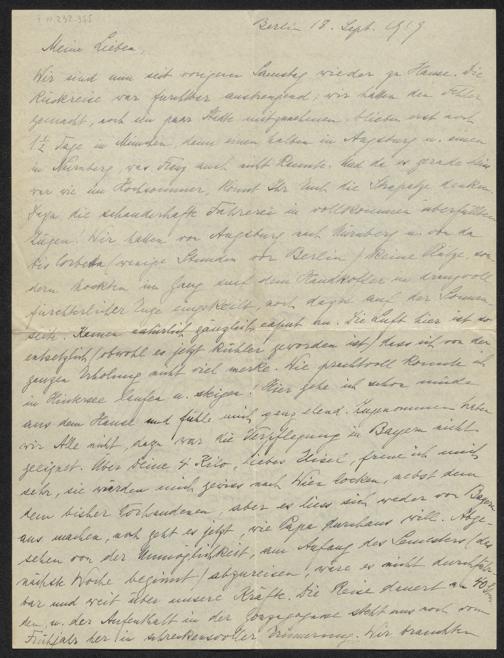 Berlin 18. Sept. 1919
Meine Lieben,
Wir sind nun seit vorigem Samstag wieder zu Hause. Die
Rückreise war furchtbar anstrengend; wir hatten den Fehler
gemacht, noch ein paar Städte mitzunehmen. blieben erst noch
1½ Tage in München, dann einen halben in Augsburg u. einen
in Nürnberg, was Franz auch nicht kannte. Und da es gerade
war wie im Hochsommer, könnt Ihr Euch die Strapaze denken.
Dazu die schauderhafte Fahrerei in vollkommen überfüllten
Zügen! Wir hatten von Augsburg nach Nürnberg u. von da
bis (wenige Stunden vor Berlin) keine Plätze, son
dern hockten im Gang auf dem Handkoffer in drangvoll
fürchterlicher Enge eingekeilt, noch dazu auf der Sonnen
seite. Kamen natürlich gänzlich caput an. Die Luft hier ist so
entsetzlich (obwohl es jetzt kühler geworden ist) dass ich von der
ganzen Erholung nicht viel merke. Wie prachtvoll konnte ich
im Hintersee laufen u. steigen! Hier gehe ich schon müde
aus dem Hause und fühle mich ganz elend. Zugenommen haben
wir Alle nicht, dazu war die Verpflegung in Bayern nicht
geeignet. Über Deine 4 Kilo, liebes, freue ich mich
sehr, sie würden mich gewiss nach Wien locken, nebst dem
dem bisher Vorhandenen, aber es liess sich weder von Bayern
aus machen, noch geht es jetzt, wie Papa durchaus will. Abge-
sehen von der Unmöglichkeit, am Anfang des Semesters (das
nächste Woche beginnt) abzureisen, wäre es nicht durchführ-
bar und weit über unsere Kräfte. Die Reise dauert an 40 Stun
den, u. der Aufenthalt in der steht uns noch vom
Frühjahr her in schreckensvoller Erinnerung. Wir brauchten